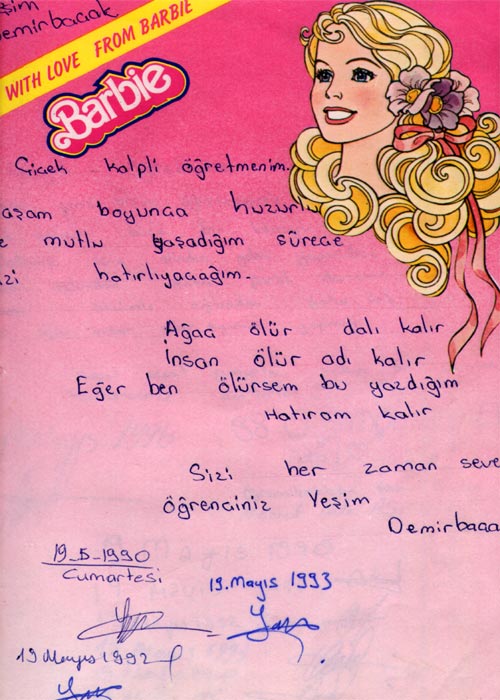 eşim
Demirbacak
WITH LOVE FROM BARBIE
Barbie
Çiçek kalpli öğretmenim.
aşam boyunca huzurlu
e mutlu yaşadığım sürece
zi hatırlıyacağım.
Ağaç ölür dalı kalır
İnsan ölür adı kalır
Eğer ben ölürsem bu yazdığım
Hatıram kalır
Sizi her zaman seve
öğrenciniz Yeşim
Demirbaca
19_5_1990
Cumartesi
19.Mayıs 1993
19 Mayıs 1992